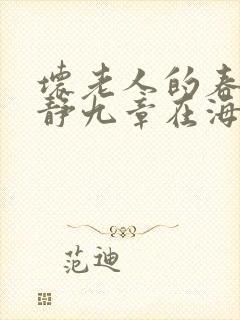 坏老人的春
静九章在海
范迪